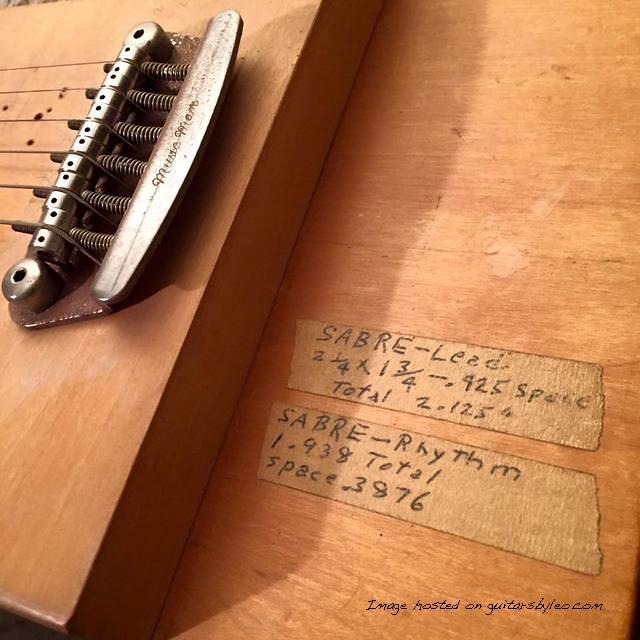 Music Man
SABRE-Lead
2 1/4 x 1 3/4 -.925 space
Total 2.125"
SABRE-Rhythm
1.938 Total
space.3876
Image hosted on guitarsbyleo.com